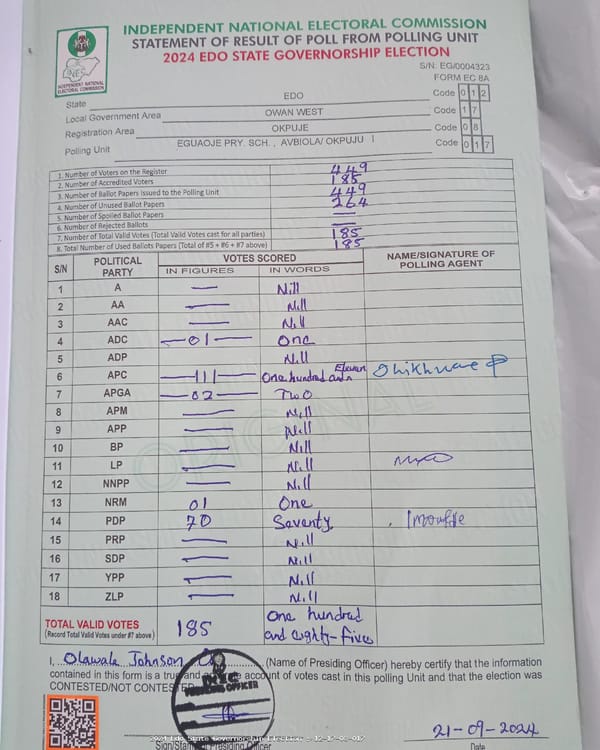 INDEPENDENT NATIONAL ELECTORAL COMMISSION
STATEMENT OF RESULT OF POLL FROM POLLING UNIT
2024 EDO STATE GOVERNORSHIP ELECTION
INEC
INDEPENDENT NATIONAL ELECTORAL COMMISSION
S/N: EG/0004323
FORM EC 8A
State EDO Code 0 1 2
Local Government Area OWAN WEST Code 1 7
Registration Area OKPUJE Code 0 8
Polling Unit EGUAOJE PRY. SCH. , AVBIOLA/ OKPUJU I Code 0 1 7
1. Number of Voters on the Register 449
2. Number of Accredited Voters 185
3. Number of Ballot Papers Issued to the Polling Unit 449
4. Number of Unused Ballot Papers 264
5. Number of Spoiled Ballot Papers —
6. Number of Rejected Ballots —
7. Number of Total Valid Votes (Total Valid Votes cast for all parties) 185
8. Total Number of Used Ballots Papers (Total of #5 + #6 + #7 above) 185
S/N POLITICAL PARTY VOTES SCORED NAME/SIGNATURE OF POLLING AGENT
IN FIGURES IN WORDS
1 A — Nill
2 AA — Nill
3 AAC — Nill
4 ADC —01— One
5 ADP Nill
6 APC —111— One hundred and Eleven
7 APGA —02— Two
8 APM — Nill
9 APP — Nill
10 BP — Nill
11 LP — Nill
12 NNPP — Nill
13 NRM 01 One
14 PDP 70 Seventy
15 PRP — Nill
16 SDP — Nill
17 YPP — Nill
18 ZLP — Nill
TOTAL VALID VOTES 185 One hundred and eighty-five
(Record Total Valid Votes under #7 above)
I, Olawale Johnson (Name of Presiding Officer) hereby certify that the information
contained in this form is a true and account of votes cast in this polling Unit and that the election was
CONTESTED/NOT CONTESTED
PRESIDING OFFICER
21-09-2024
2024 Edo State Governorship Election - 12-17-08-017
Sign/Stamp Presiding Officer
Date